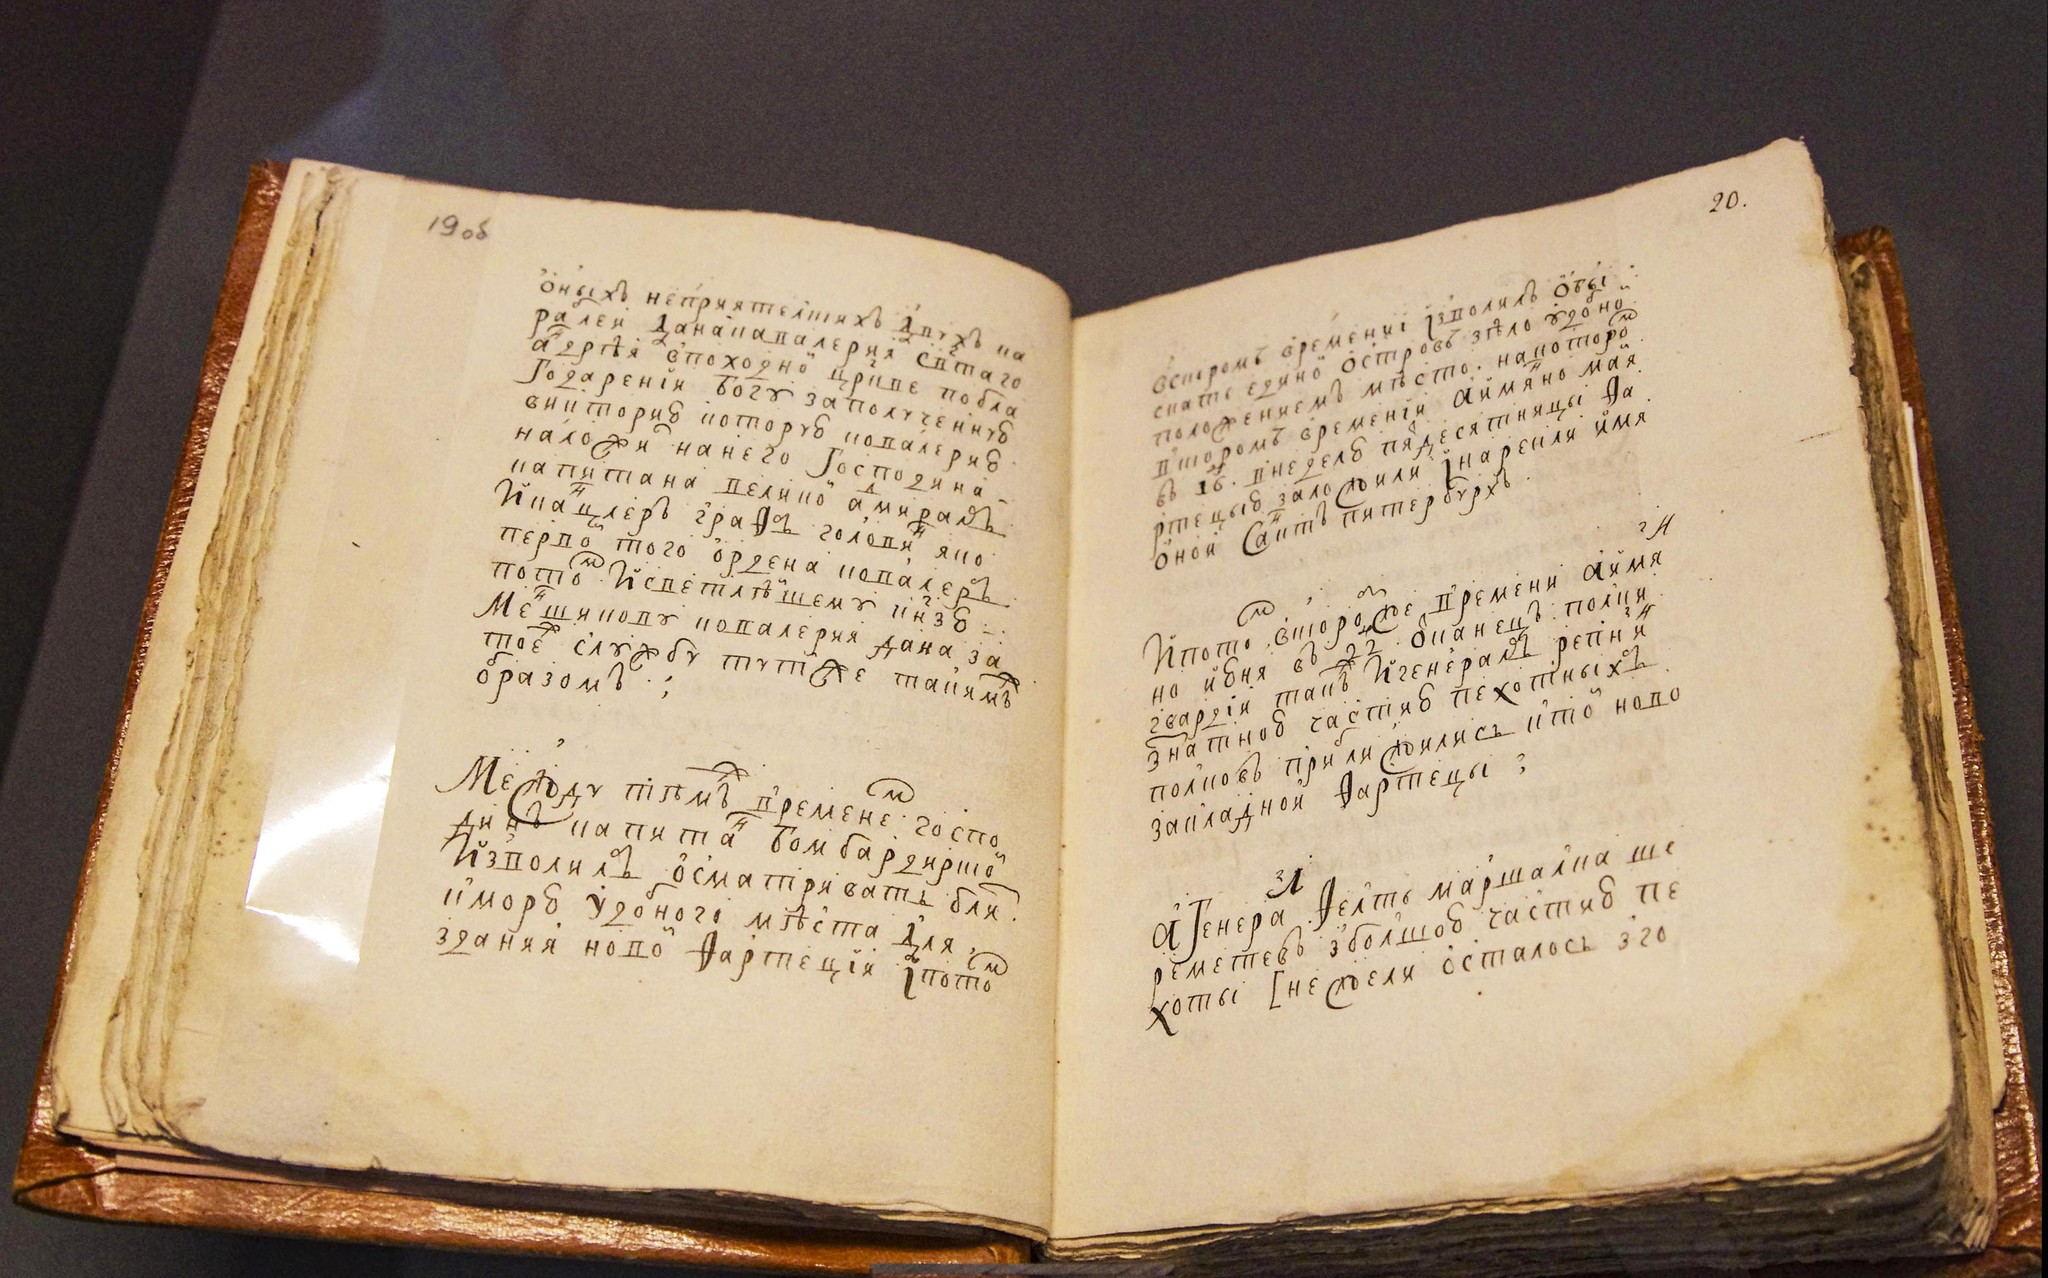 19об
оныхъ непрiятелскихъ двухъ ка
раблеи дана кавалерия свѣтаго
андрѣя впоходнои цркве по бла
годаренiи богу за полученную
викторию которую кавалерию
наложил на него господина
капитана великои амиралъ
и канцлеръ графъ головин яко
первои того ордена кавалеръ
потом и свѣтлѣишему кнзю
меншикову кавалерия дана за
тое службу тутже такимъ
образомъ ;
Между тѣмъ временем госпо
динъ капитан бомбардирскои
изволилъ осматривать близ
к морю удобного мѣста для
здания новои фартецiи i потом
20.
вскором времени iзволилъ обы
скать единои островъ зѣло удобнои
положениемъ мѣсто. на котором
вскором времени а имянно мая
въ 16. в неделю пядесятницы фа
ртецыю заложили i нарекли имя
онои Санктъ питербурхъ .
И потом вскорости же времени а имя
но июня въ 22 д изканецъ полки
гвардiи такъ и генералъ репнин
знатною частию пехотныхъ
полковъ приближились к тои ново
закладнои фартецы ;
А Генерал фелть маршалка ше
реметевъ з болшою частию пе
хоты [нежели осталось з го